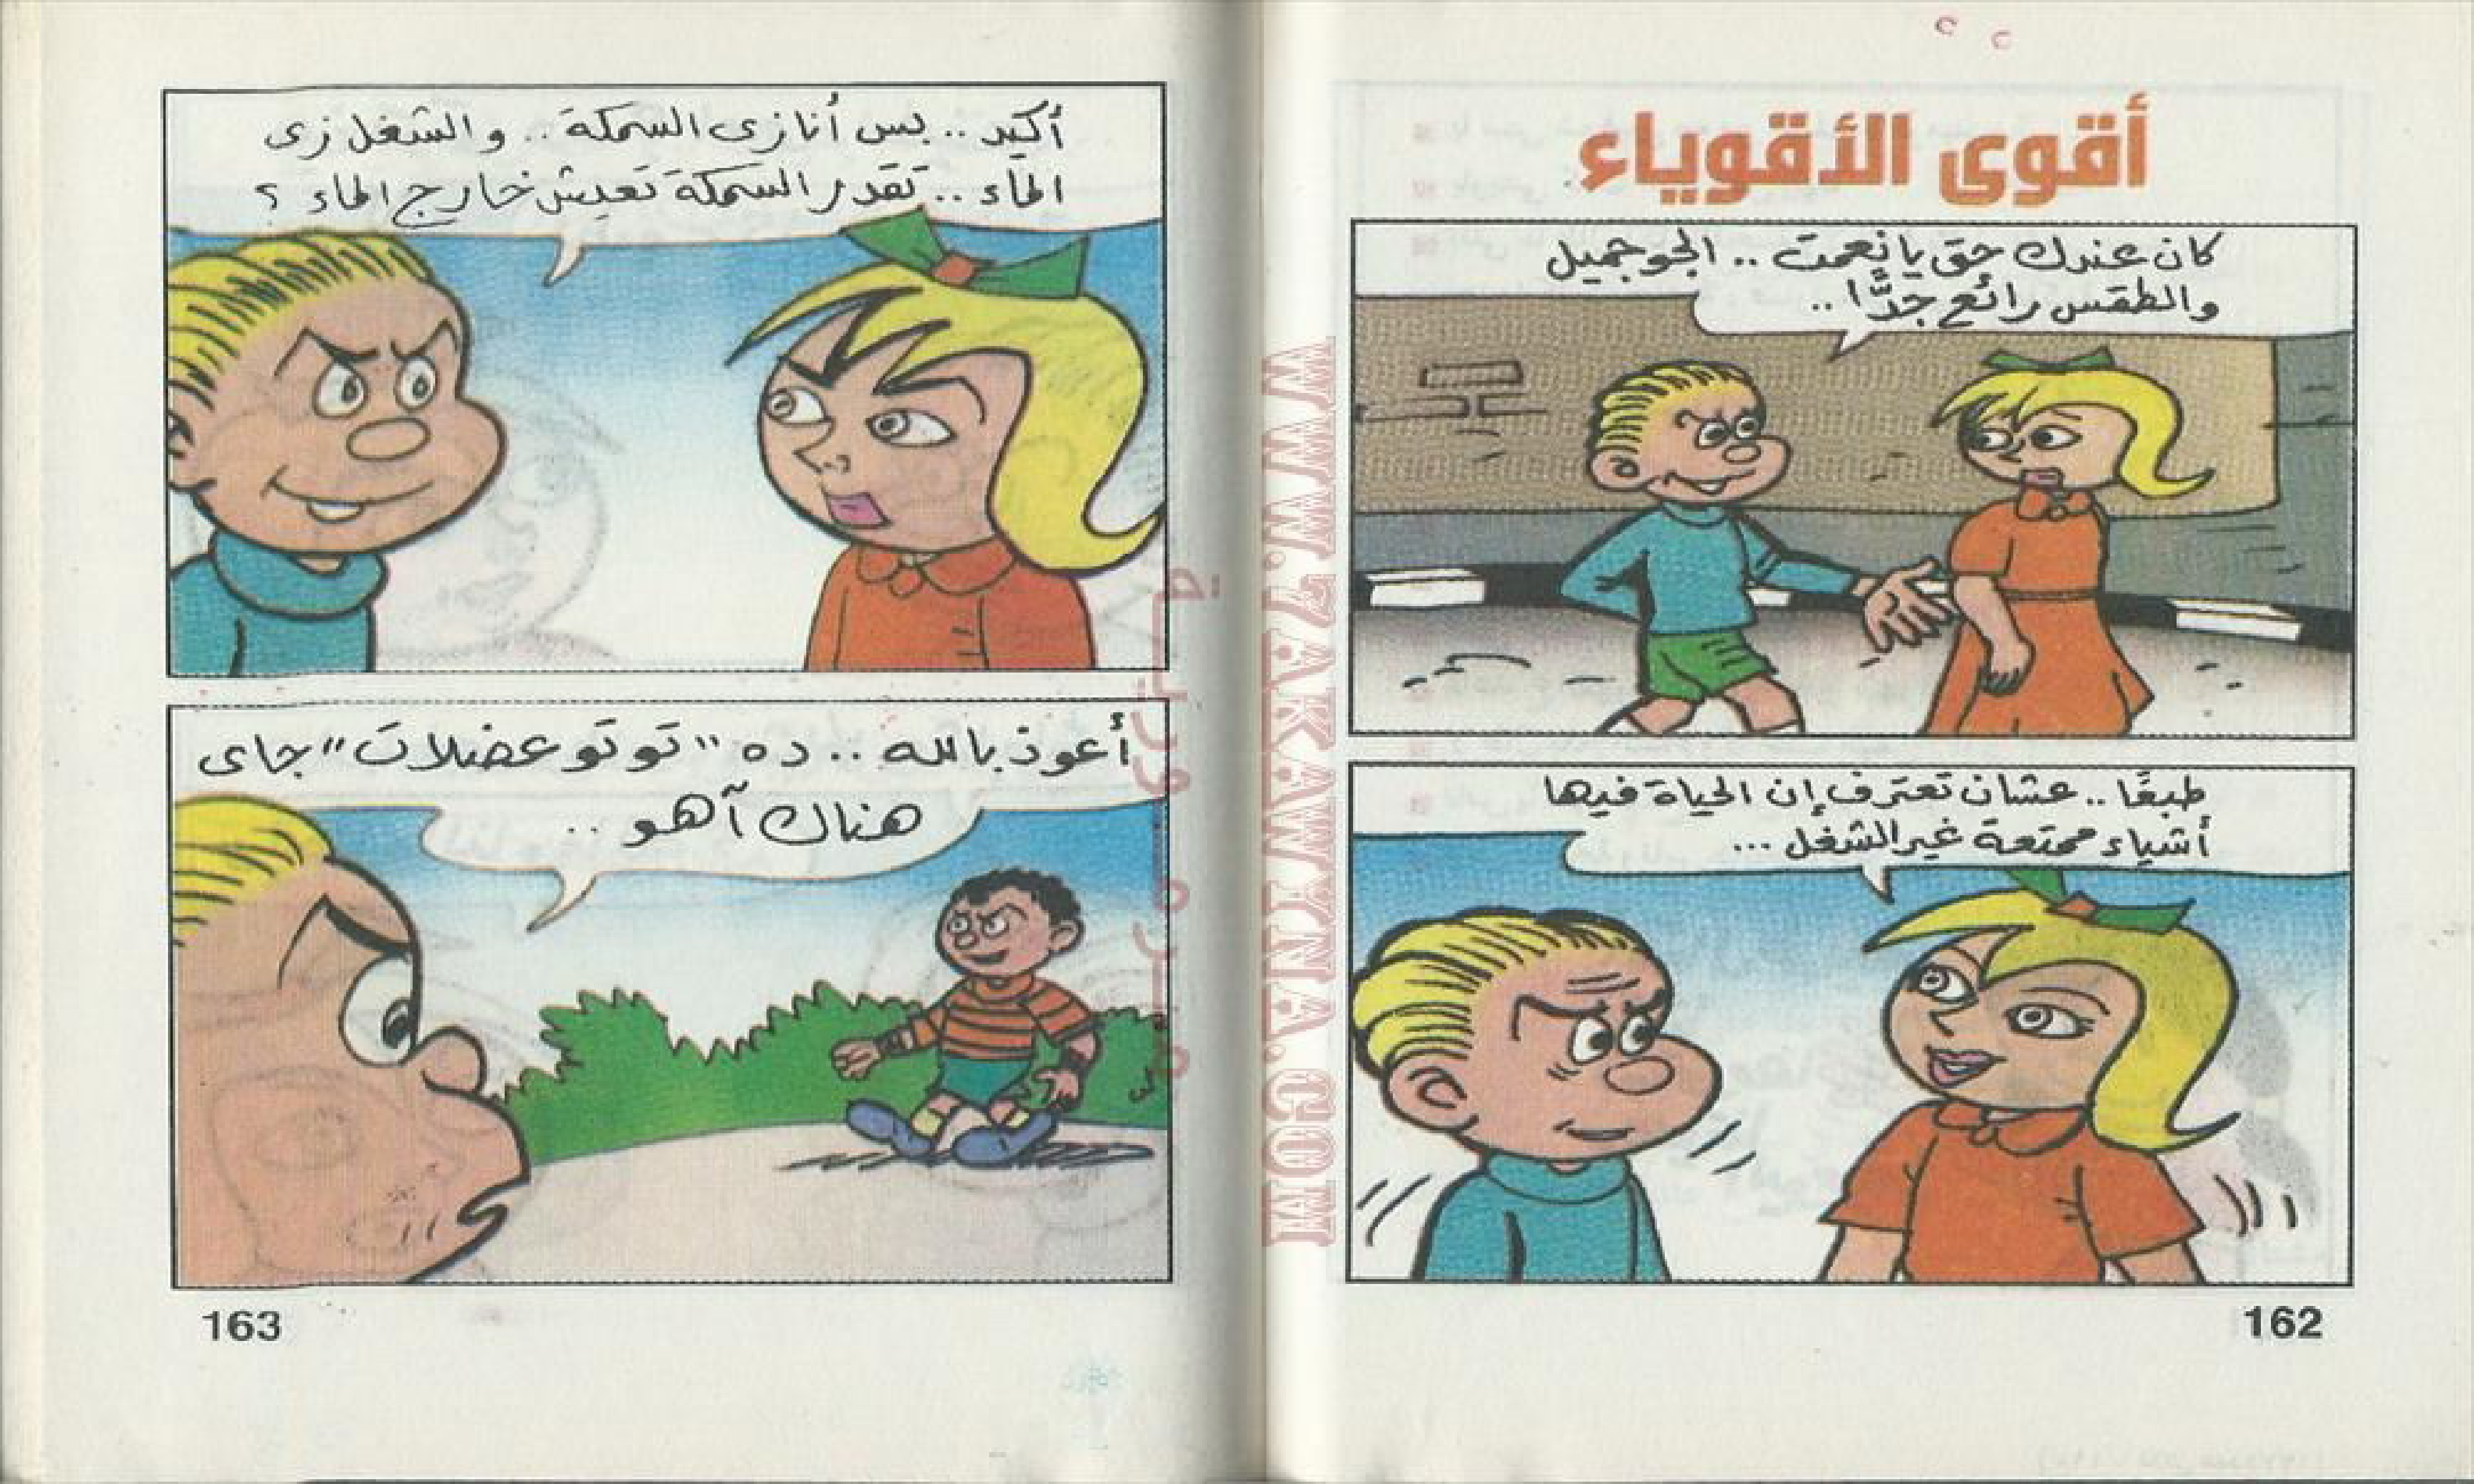 أقوى الأقوياء
كان عندك حق يا نعمت .. الجو جميل
والطقس رائع جدًّا ..
طبعًا .. عشان تعترف إن الحياة فيها
أشياء ممتعة غير الشغل ...
162
أكيد .. بس أنا زى السمكة .. والشغل زى
الماء .. تقدر السمكة تعيش خارج الماء ؟
أعوذ بالله .. ده "توتو عضلات" جاى
هناك آهو ..
163
WWW.ZAKAWYNA.COM